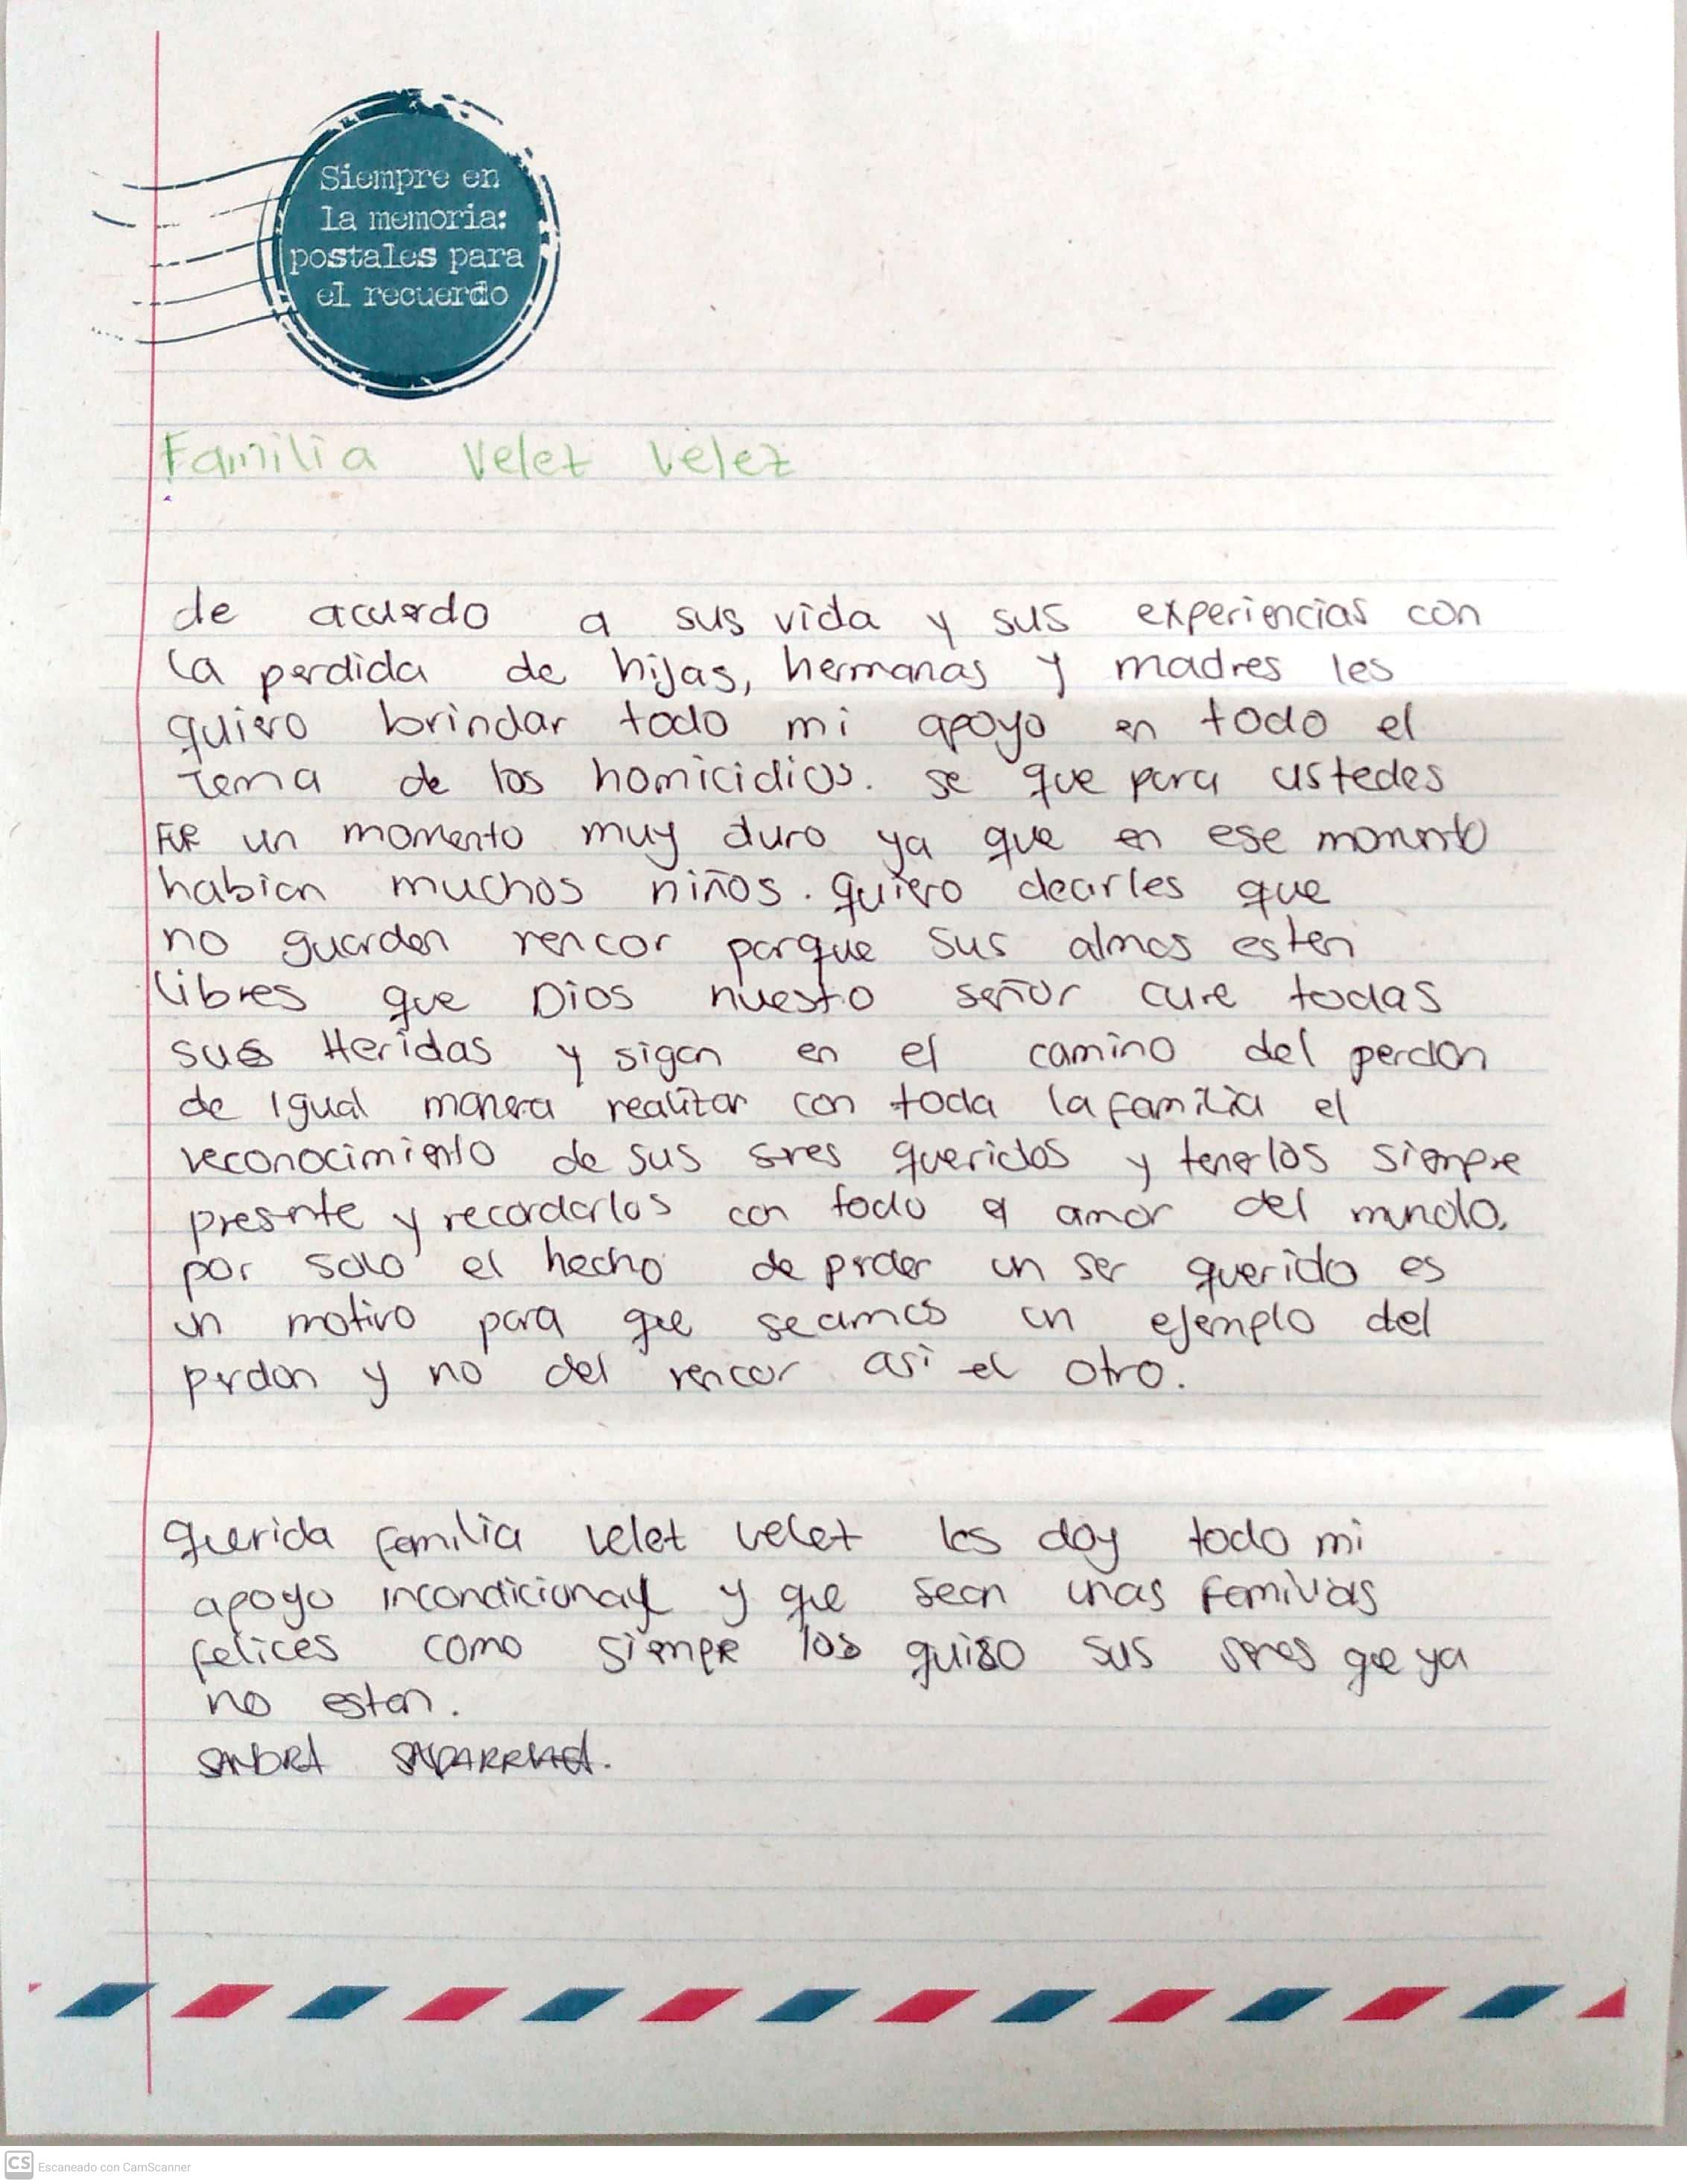 Siempre en
la memoria:
postales para
el recuerdo
Familia Velez Velez
de acuerdo a sus vida y sus experiencias con
la perdida de hijas, hermanas y madres les
quiero brindar todo mi apoyo en todo el
tema de los homicidios. se que para ustedes
fue un momento muy duro ya que en ese momento
habian muchos niños. quiero decirles que
no guarden rencor porque sus almas esten
libres que Dios nuesto señor cure todas
sus Heridas y sigan en el camino del perdon
de igual manera realizar con toda la familia el
reconocimiento de sus seres queridos y tenerlos siempre
presente y recordarlos con todo el amor del mundo.
por solo el hecho de perder un ser querido es
un motivo para que seamos un ejemplo del
perdon y no del rencor asi el otro.
querida familia velez velez les doy todo mi
apoyo incondicional y que sean unas familias
felices como siempre los quiso sus seres que ya
no estan.
SANDRA
CS Escaneado con CamScanner